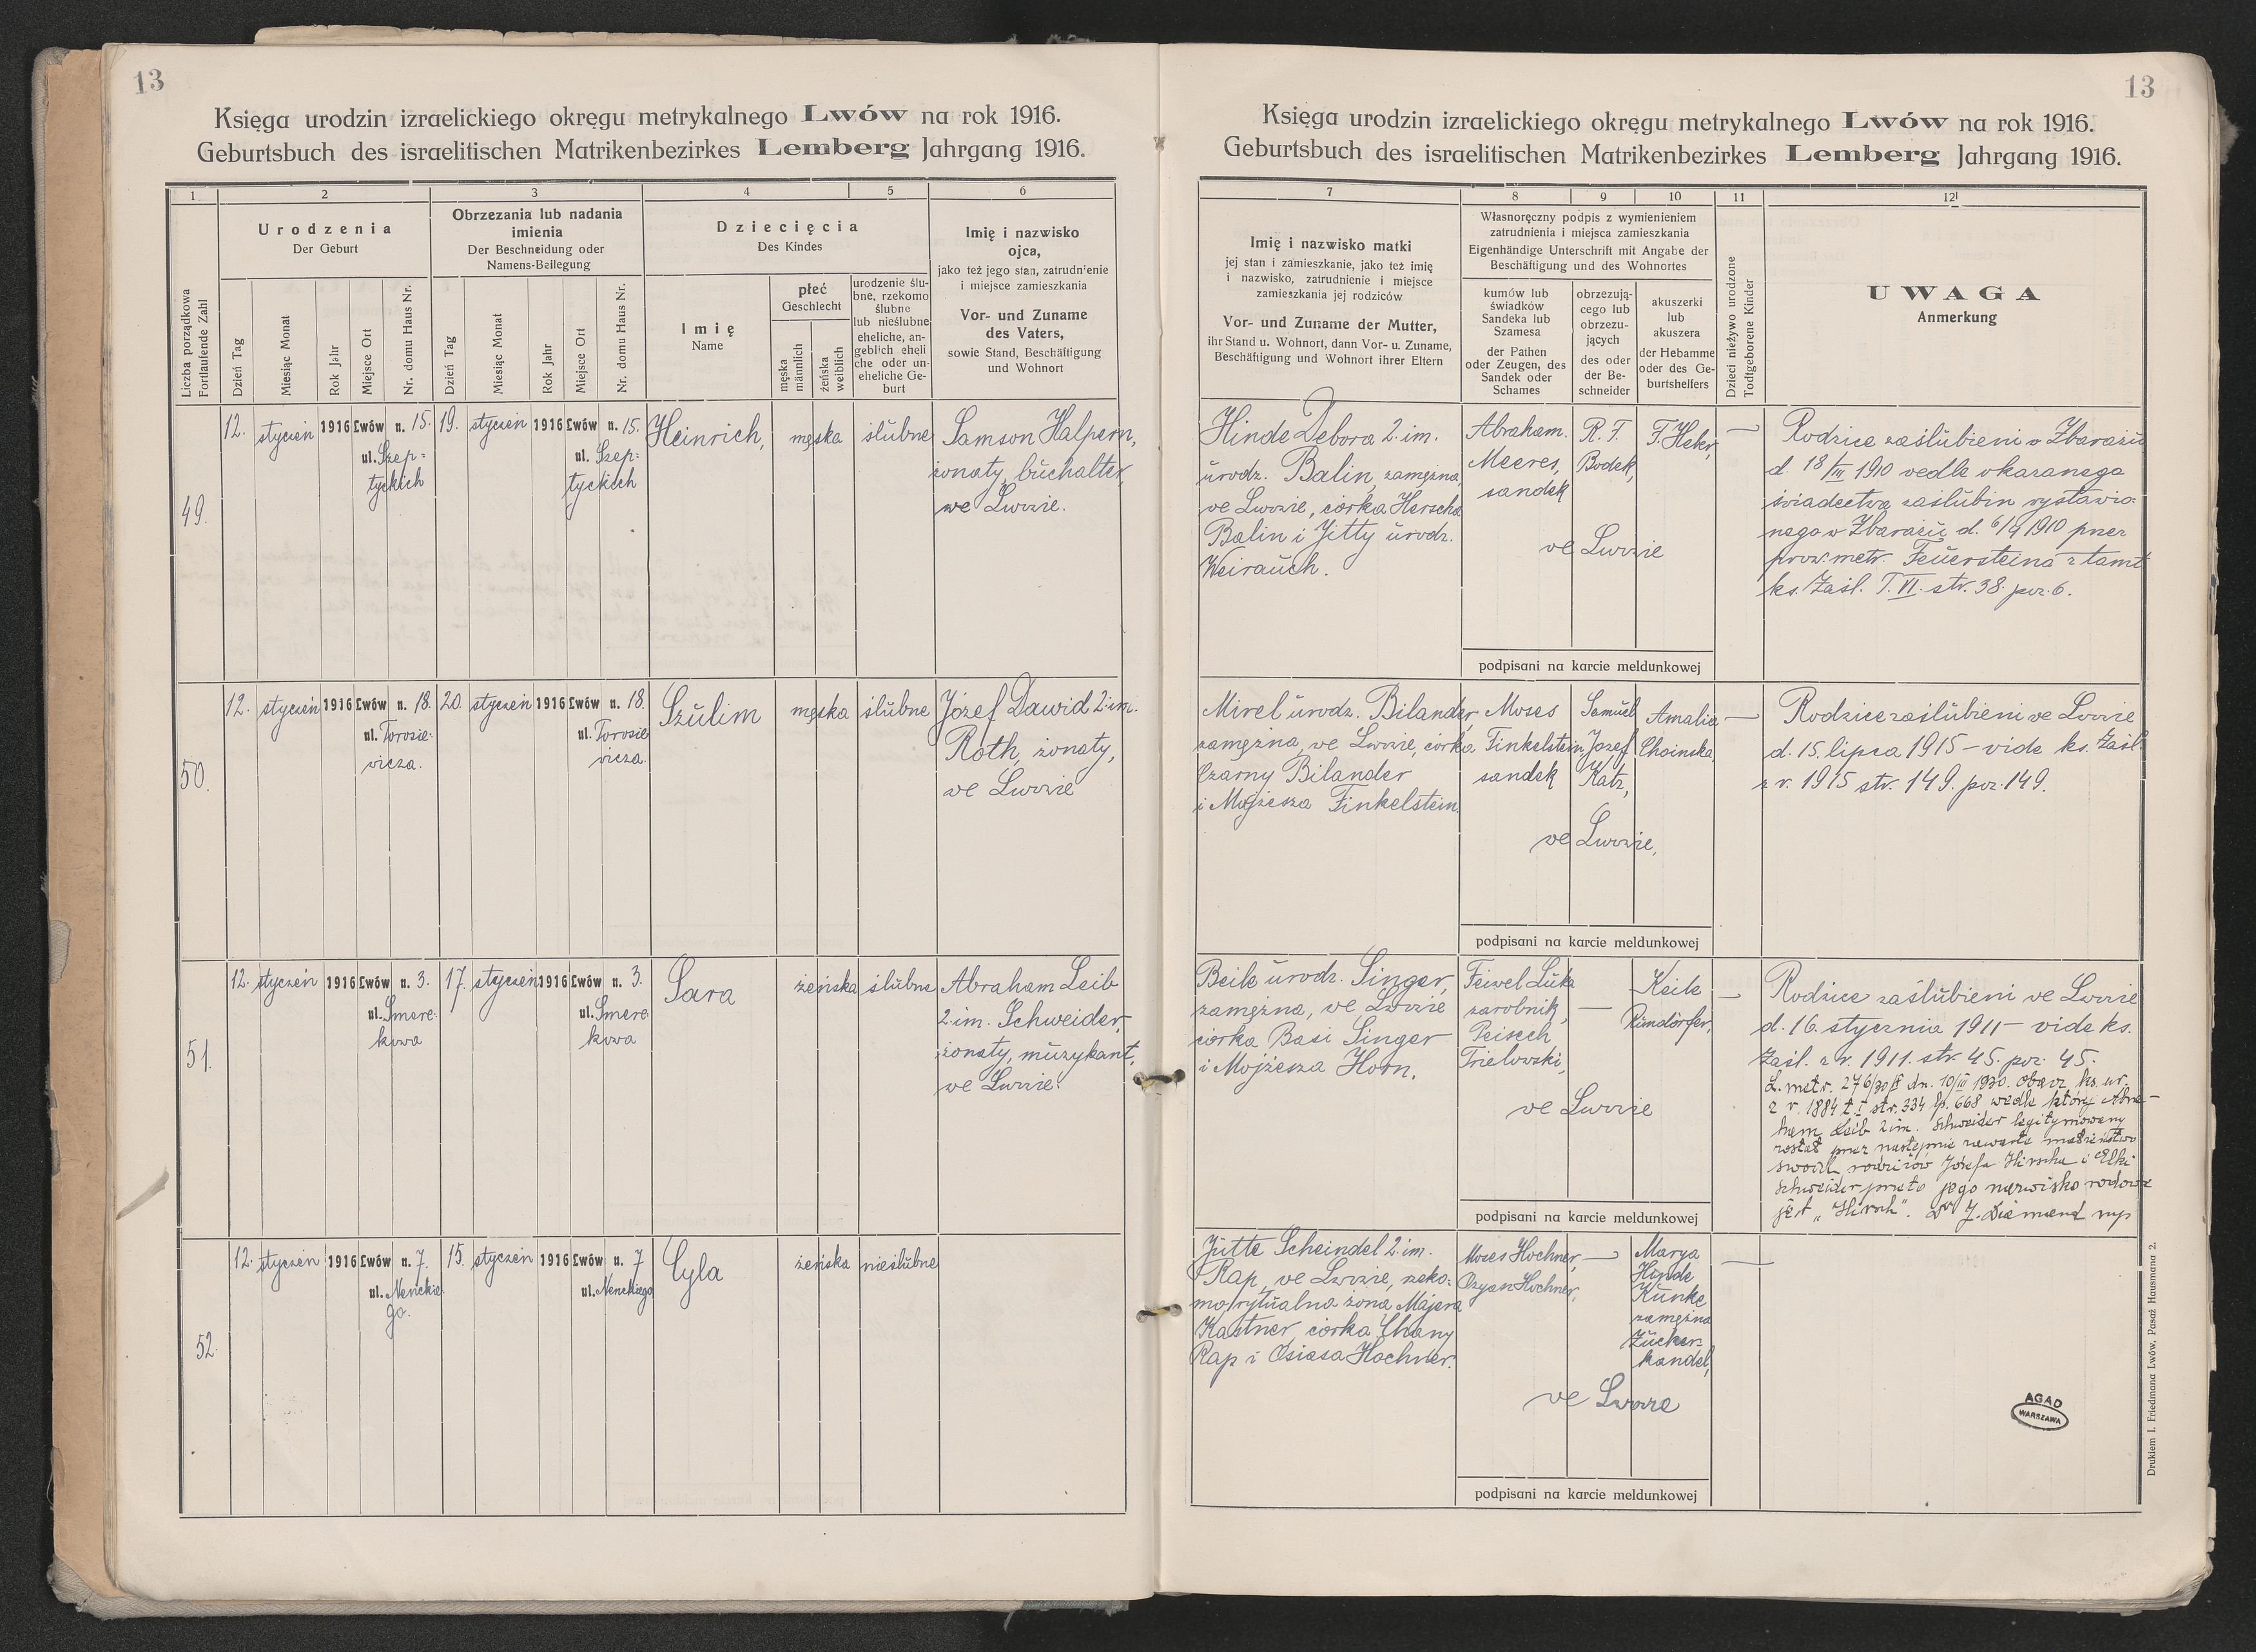 13
Księga urodzin izraelickiego okręgu metrykalnego Lwów na rok 1916.
Geburtsbuch des israelitischen Matrikenbezirkes Lemberg Jahrgang 1916.
1 2 3 4 5 6
Liczba porządkowa
Fortlaufende Zahl
Urodzenia
Der Geburt
Dzień Tag
Miesiąc Monat
Rok Jahr
Miejsce Ort
Nr. domu Haus Nr.
Obrzezania lub nadania
imienia
Der Beschneidung oder
Namens-Beilegung
Dzień Tag
Miesiąc Monat
Rok Jahr
Miejsce Ort
Nr. domu Haus Nr.
Dziecięcia
Des Kindes
Imię
Name
płeć
Geschlecht
męska
männlich
żeńska
weiblich
urodzenie ślu-
bne, rzekomo
ślubne
lub nieślubne
eheliche, an-
geblich eheli
che oder un-
eheliche Ge-
burt
Imię i nazwisko
ojca,
jako też jego stan, zatrudn'enie
i miejsce zamieszkania
Vor- und Zuname
des Vaters,
sowie Stand, Beschäftigung
und Wohnort
49.
12. styczeń 1916 Lwów n. 15.
ul. Szep=
tyckich
19. styczeń 1916 Lwów n. 15.
ul. Szep=
tyckich
Heinrich,
męska
ślubne
Samson Halpern,
żonaty, buchalter,
we Lwowie.
50.
12. styczeń 1916 Lwów n. 18.
ul. Torosie-
wicza.
20. styczeń 1916 Lwów n. 18.
ul. Torosie
wicza.
Szulim
męska
ślubne
Józef Dawid 2-im.
Roth, żonaty,
we Lwowie
51.
12. styczeń 1916 Lwów n. 3.
ul. Smere-
kowa
17. styczeń 1916 Lwów n. 3.
ul. Smere
kowa
Sara
żeńska
ślubne
Abraham Leib
2-im. Schweider,
żonaty, muzykant,
we Lwowie.
52.
12. styczeń 1916 Lwów n. 7.
ul. Nenckie-
go.
15. styczeń 1916 Lwów n. 7
ul. Nenckiego
Cyla
żeńska
nieślubne
13
Księga urodzin izraelickiego okręgu metrykalnego Lwów na rok 1916.
Geburtsbuch des israelitischen Matrikenbezirkes Lemberg Jahrgang 1916.
7 8 9 10 11 12
Imię i nazwisko matki
jej stan i zamieszkanie, jako też imię
i nazwisko, zatrudnienie i miejsce
zamieszkania jej rodziców
Vor- und Zuname der Mutter,
ihr Stand u. Wohnort, dann Vor- u. Zuname,
Beschäftigung und Wohnort ihrer Eltern
Własnoręczny podpis z wymienieniem
zatrudnienia i miejsca zamieszkania
Eigenhändige Unterschrift mit Angabe der
Beschäftigung und des Wohnortes
kumów lub
świadków
Sandeka lub
Szamesa
der Pathen
oder Zeugen, des
Sandek oder
Schames
obrzezują-
cego lub
obrzezu-
jących
des oder
der Be-
schneider
akuszerki
lub
akuszera
der Hebamme
oder des Ge-
burtshelfers
Dzieci nieżywo urodzone
Todtgeborene Kinder
UWAGA
Anmerkung
Hinde Debora 2-im.
urodz. Balin, zamężna,
we Lwowie, córka Herscha
Balin i Jitty urodz.
Weirauch.
Abraham
Meeres,
sandek
R. T.
Bodek,
T. Heker,
we Lwowie
podpisani na karcie meldunkowej
—
Rodzice zaślubieni w Zbarażu
d. 18/III 1910 wedle okazanego
świadectwa zaślubin wystawio-
nego w Zbarażu d. 6/9 1910 przez
prow. metr. Feuersteina z tamt
ks. Zaśl. T. VI. str. 38. poz. 6.
Mirel urodz. Bilander,
zamężna, we Lwowie, córka
Czarny Bilander
i Mojżesza Finkelstein.
Moses
Finkelstein,
sandek
Samuel
Josef
Katz,
Amalia
Choinska,
we Lwowie,
podpisani na karcie meldunkowej
—
Rodzice zaślubieni we Lwowie
d. 15. lipca 1915 – vide ks. Zaśl.
z r. 1915 str. 149. poz. 149.
Beile urodz. Singer,
zamężna, we Lwowie
córka Basi Singer
i Mojżesza Horn.
Feiwel Luka
zarobnik,
Peisech
Trielowski,
—
Keile
Rimdörfer,
we Lwowie
podpisani na karcie meldunkowej
—
Rodzice zaślubieni we Lwowie
d. 16. stycznia 1911 – vide ks.
Zaśl. z r. 1911. str. 45. poz. 45.
L. metr. 276/30/I dn. 10/III 1930. obacz ks. ur.
z r. 1884 t. I str. 334 lp. 668 wedle której Abra-
ham Leib 2 im. Schweider legitymowany
został przez następnie zawarte małżeństwo
swoich rodziców Józefa Hirscha i Elki
Schweider przeto jego nazwisko rodowe
jest „Hirsch". Dr J. Diamand mp
Jütte Scheindel 2-im.
Rap, we Lwowie, rzeko-
mo rytualna żona Majera
Kastner, córka Chany
Rap i Osiasa Hochner.
Moses Hochner,
Ozyas Hochner,
—
Marya
Hinde
Kunke
zamężna
Zucker-
kandel,
we Lwowie
podpisani na karcie meldunkowej
—
AGAD
WARSZAWA
Drukiem I. Friedmana Lwów, Pasaż Hausmana 2.